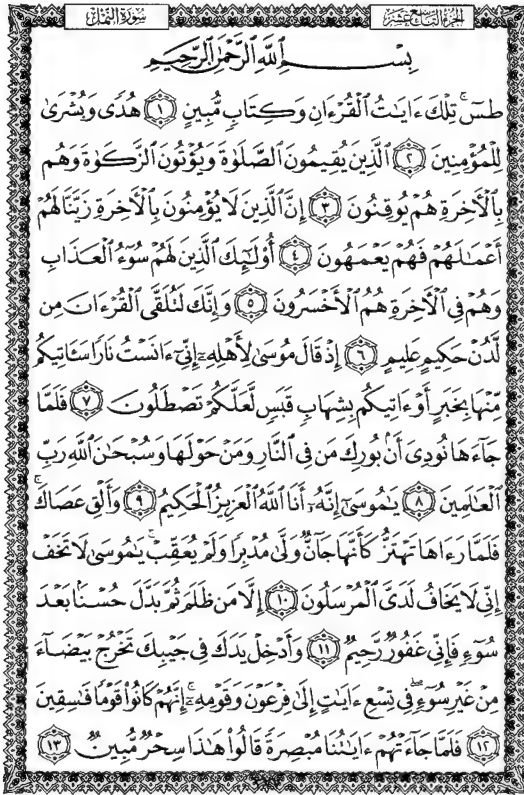 سُورَةُ النَّمْلِ
الجُزْءُ التَّاسِعَ عَشَرَ
بِسْمِ اللَّهِ الرَّحْمَٰنِ الرَّحِيمِ
طسٓ ۚ تِلْكَ ءَايَٰتُ الْقُرْءَانِ وَكِتَابٍ مُّبِينٍ ﴿١﴾ هُدًى وَبُشْرَىٰ
لِلْمُؤْمِنِينَ ﴿٢﴾ الَّذِينَ يُقِيمُونَ الصَّلَوٰةَ وَيُؤْتُونَ الزَّكَوٰةَ وَهُم
بِالْأَخِرَةِ هُمْ يُوقِنُونَ ﴿٣﴾ إِنَّ الَّذِينَ لَا يُؤْمِنُونَ بِالْأَخِرَةِ زَيَّنَّا لَهُمْ
أَعْمَٰلَهُمْ فَهُمْ يَعْمَهُونَ ﴿٤﴾ أُوْلَٰٓئِكَ الَّذِينَ لَهُمْ سُوٓءُ الْعَذَابِ
وَهُمْ فِي الْأَخِرَةِ هُمُ الْأَخْسَرُونَ ﴿٥﴾ وَإِنَّكَ لَتُلَقَّى الْقُرْءَانَ مِن
لَّدُنْ حَكِيمٍ عَلِيمٍ ﴿٦﴾ إِذْ قَالَ مُوسَىٰ لِأَهْلِهِۦٓ إِنِّيٓ ءَانَسْتُ نَارًا سَـَٔاتِيكُم
مِّنْهَا بِخَبَرٍ أَوْ ءَاتِيكُم بِشِهَابٍ قَبَسٍ لَّعَلَّكُمْ تَصْطَلُونَ ﴿٧﴾ فَلَمَّا
جَآءَهَا نُودِيَ أَنۢ بُورِكَ مَن فِي النَّارِ وَمَنْ حَوْلَهَا وَسُبْحَٰنَ اللَّهِ رَبِّ
الْعَٰلَمِينَ ﴿٨﴾ يَٰمُوسَىٰٓ إِنَّهُۥٓ أَنَا اللَّهُ الْعَزِيزُ الْحَكِيمُ ﴿٩﴾ وَأَلْقِ عَصَاكَ ۚ
فَلَمَّا رَءَاهَا تَهْتَزُّ كَأَنَّهَا جَآنٌّ وَلَّىٰ مُدْبِرًا وَلَمْ يُعَقِّبْ ۚ يَٰمُوسَىٰ لَا تَخَفْ
إِنِّي لَا يَخَافُ لَدَيَّ الْمُرْسَلُونَ ﴿١٠﴾ إِلَّا مَن ظَلَمَ ثُمَّ بَدَّلَ حُسْنًۢا بَعْدَ
سُوٓءٍ فَإِنِّي غَفُورٌ رَّحِيمٌ ﴿١١﴾ وَأَدْخِلْ يَدَكَ فِي جَيْبِكَ تَخْرُجْ بَيْضَآءَ
مِنْ غَيْرِ سُوٓءٍ ۖ فِي تِسْعِ ءَايَٰتٍ إِلَىٰ فِرْعَوْنَ وَقَوْمِهِۦٓ ۚ إِنَّهُمْ كَانُوا۟ قَوْمًا فَٰسِقِينَ
﴿١٢﴾ فَلَمَّا جَآءَتْهُمْ ءَايَٰتُنَا مُبْصِرَةً قَالُوا۟ هَٰذَا سِحْرٌ مُّبِينٌ ﴿١٣﴾